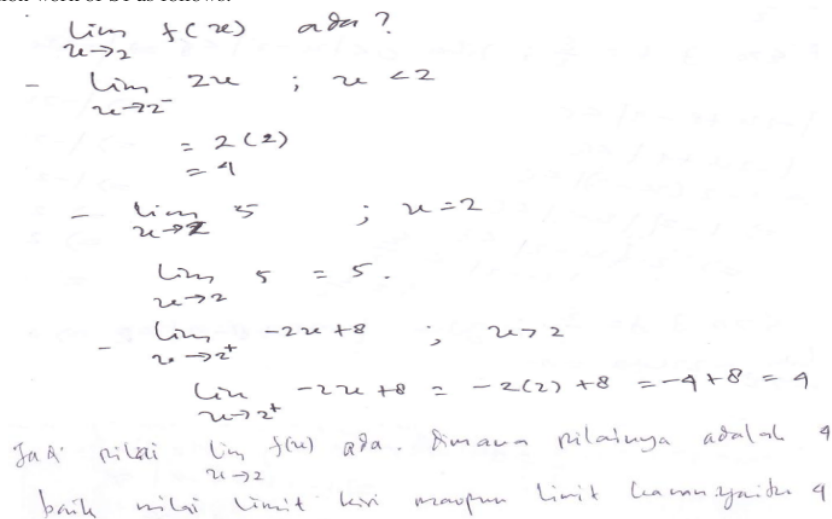 lim f(x) ada ?
x→2
- lim 2x ; x < 2
x→2⁻
= 2(2)
= 4
- lim 5 ; x = 2
x→2
lim 5 = 5.
x→2
- lim -2x + 8 ; x > 2
x→2⁺
lim -2x + 8 = -2(2) + 8 = -4 + 8 = 4
x→2⁺
Jadi nilai lim f(x) ada. dimana nilainya adalah 4
x→2
baik nilai limit kiri maupun limit kanan yaitu 4